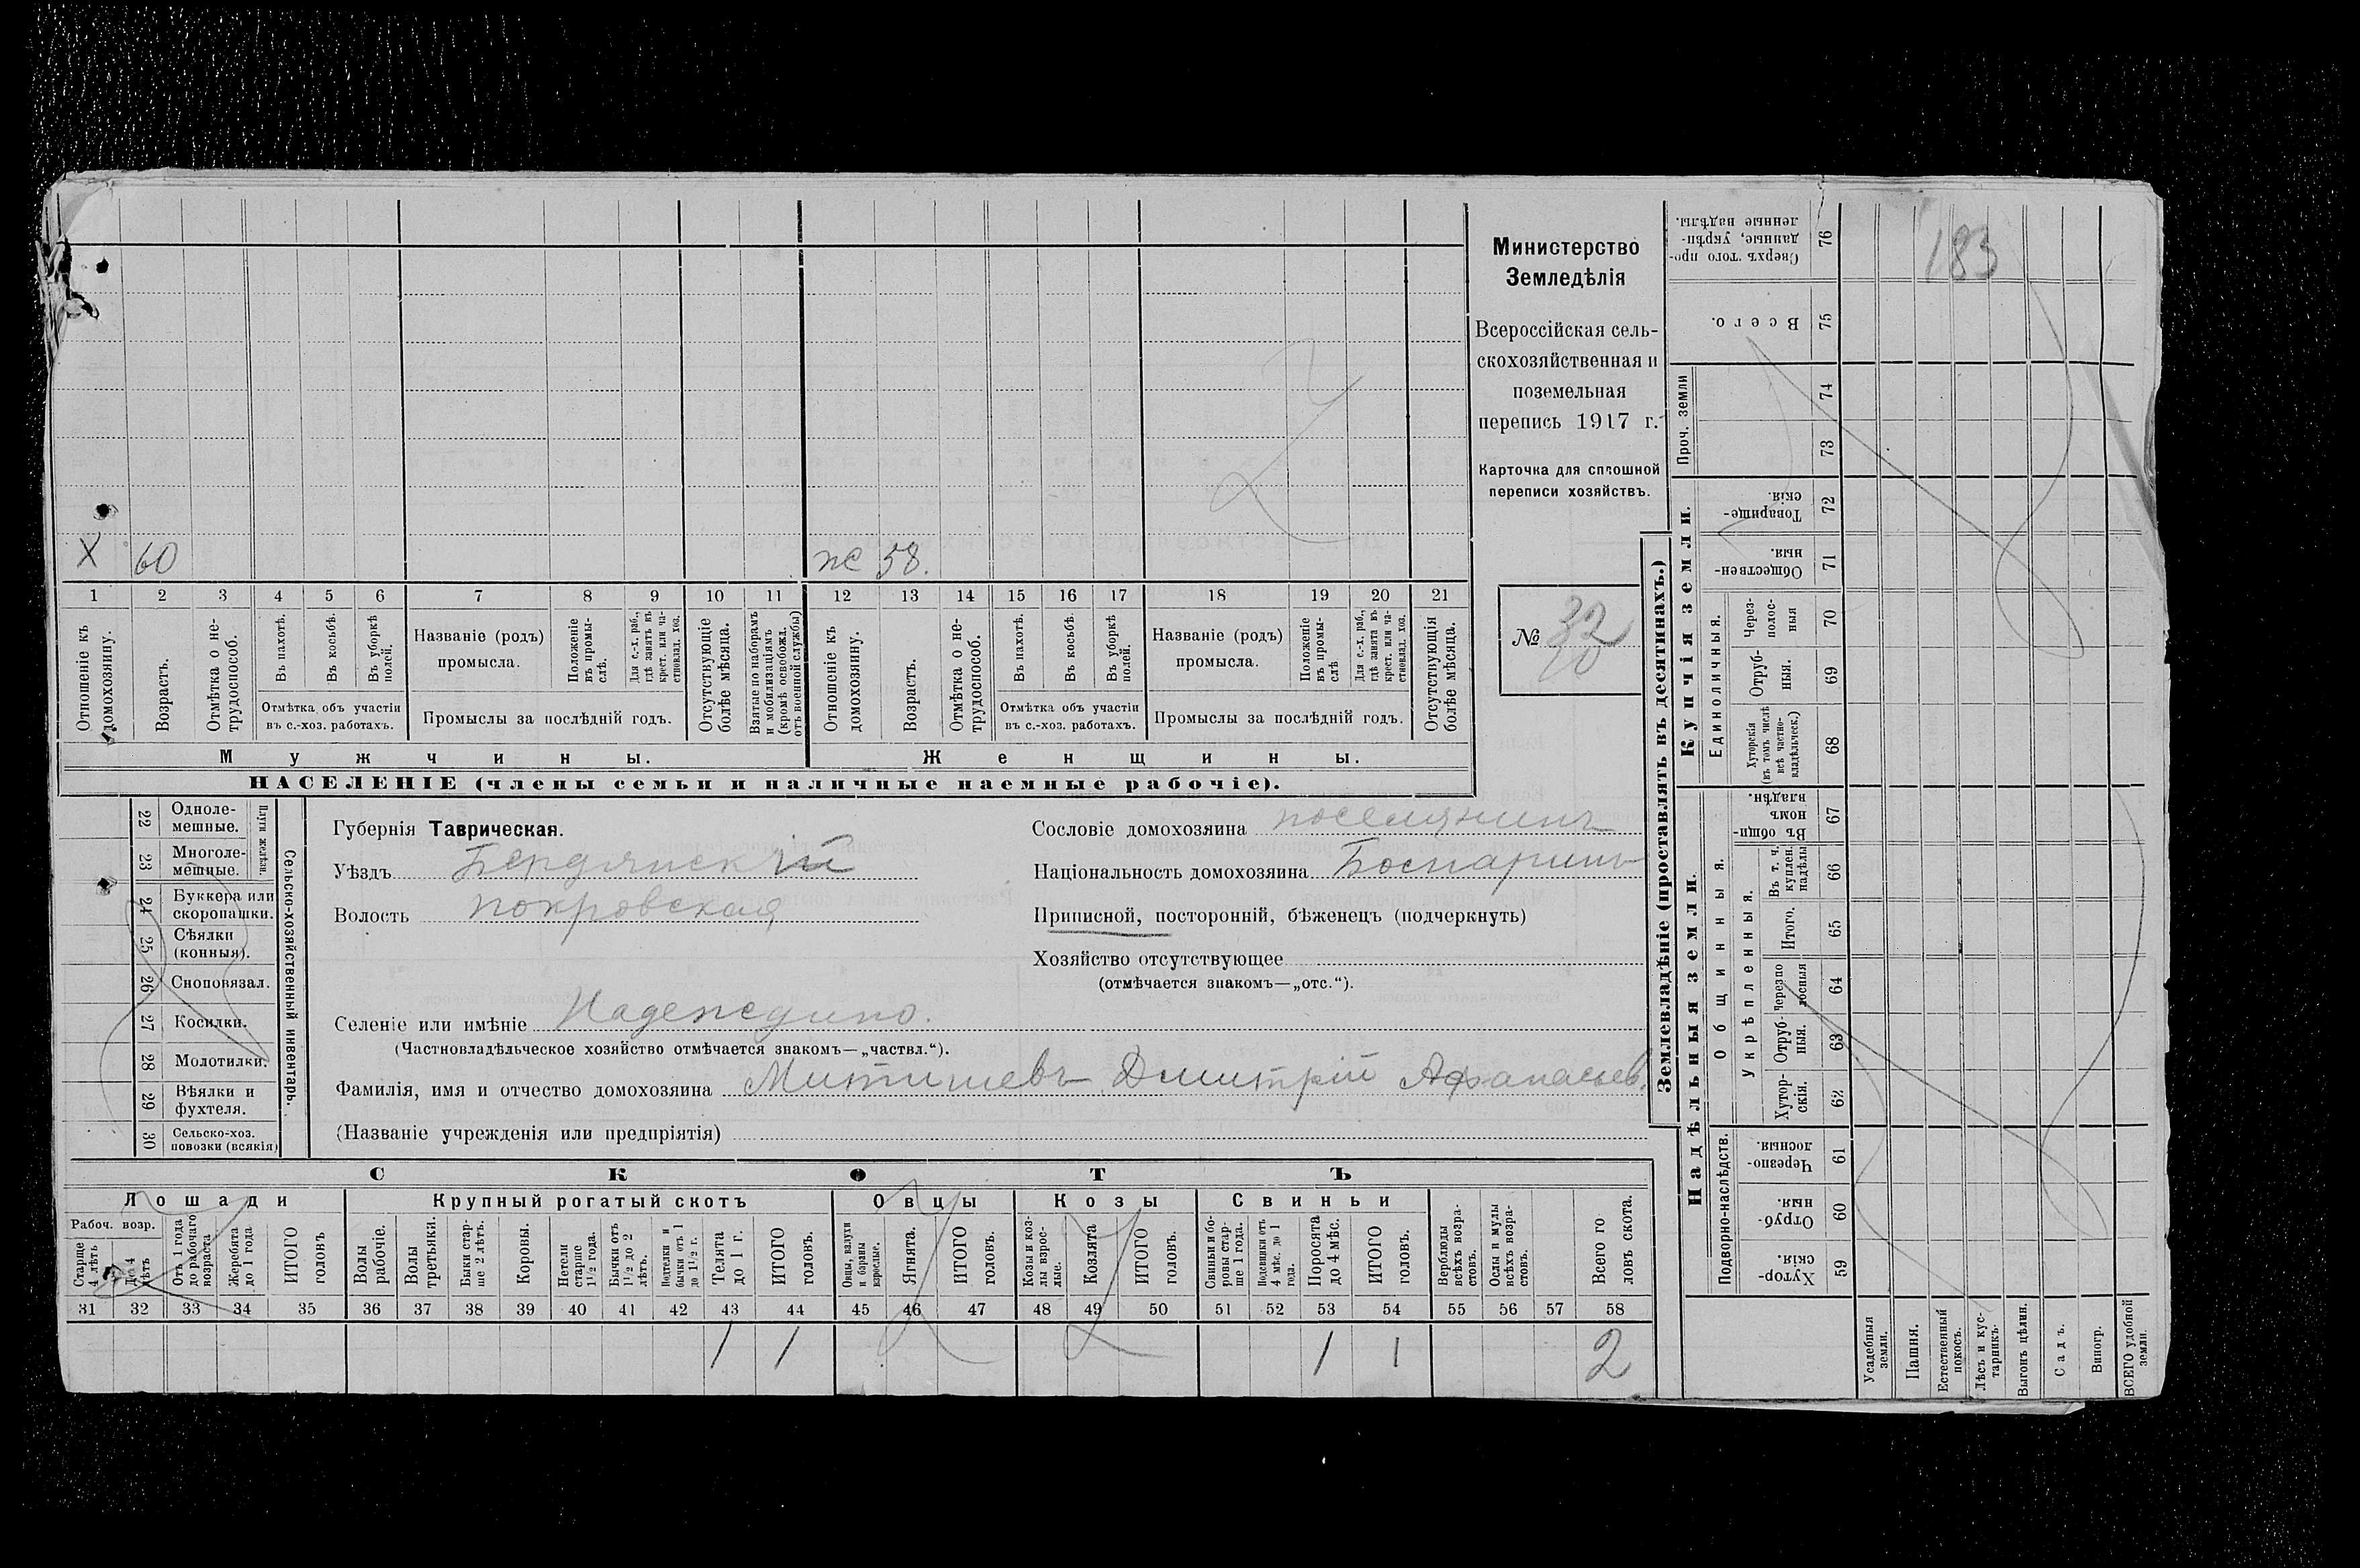 Министерство
Земледѣлія
Всероссійская сель-
скохозяйственная и
поземельная
перепись 1917 г.
Карточка для сплошной
переписи хозяйствъ.
№ 32
X 60
же 58.
1 2 3 4 5 6 7 8 9 10 11 12 13 14 15 16 17 18 19 20 21
Отношеніе къ домохозяину.
Возрастъ.
Отмѣтка о не-трудоспособ.
Въ пахотѣ.
Въ косьбѣ.
Въ уборкѣ полей.
Отмѣтка объ участіи
въ с.-хоз. работахъ.
Названіе (родъ)
промысла.
Положеніе въ промы-слѣ.
Для с.-х. раб., гдѣ занятъ въ крест. или ча-стновлад. хоз.
Промыслы за послѣдній годъ.
Отсутствующіе болѣе мѣсяца.
Взятые по наборамъ и мобилизаціямъ (кромѣ освобожд. отъ военной службы)
Отношеніе къ домохозяину.
Возрастъ.
Отмѣтка о не-трудоспособ.
Въ пахотѣ.
Въ косьбѣ.
Въ уборкѣ полей.
Отмѣтка объ участіи
въ с.-хоз. работахъ.
Названіе (родъ)
промысла.
Положеніе въ промы-слѣ
Для с.-х. раб., гдѣ занята въ крест. или ча-стновлад. хоз.
Промыслы за послѣдній годъ.
Отсутствующія болѣе мѣсяца.
Мужчины.
Женщины.
НАСЕЛЕНІЕ (члены семьи и наличные наемные рабочіе).
22 Одноле-мешные.
23 Многоле-мешные.
Плуги желѣзн.
24 Буккера или скоропашки.
25 Сѣялки (конныя).
26 Сноповязал.
27 Косилки.
28 Молотилки.
29 Вѣялки и фухтеля.
30 Сельско-хоз. повозки (всякія)
Сельско-хозяйственный инвентарь.
Губернія Таврическая.
Уѣздъ Бердянскій
Волость покровская
Сословіе домохозяина поселянинъ
Національность домохозяина
Приписной, посторонній, бѣженецъ (подчеркнуть)
Хозяйство отсутствующее
(отмѣчается знакомъ—„отс.“).
Селеніе или имѣніе Надеждино.
(Частновладѣльческое хозяйство отмѣчается знакомъ—„частвл.“).
Фамилія, имя и отчество домохозяина Дмитрій Афанасьев.
(Названіе учрежденія или предпріятія)
СКОТЪ
Лошади
Крупный рогатый скотъ
Овцы
Козы
Свиньи
Рабоч. возр.
Старще 4 лѣтъ
До 4 лѣтъ
Отъ 1 года до рабочаго возраста
Жеребята до 1 года
ИТОГО головъ
Волы рабочіе.
Волы третьяки.
Быки стар-ше 2 лѣтъ.
Коровы.
Нетели старше 1½ года.
Бычки отъ 1½ до 2 лѣтъ.
Подтелки и бычки отъ 1 до 1½ г.
Телята до 1 г.
ИТОГО головъ.
Овцы, валухи и бараны взрослые.
Ягнята.
ИТОГО головъ.
Козы и коз-лы взрос-лые.
Козлята
ИТОГО головъ.
Свиньи и бо-ровы стар-ше 1 года.
Подсвинки отъ 4 мѣс. до 1 года.
Поросята до 4 мѣс.
ИТОГО головъ.
Верблюды всѣхъ возра-стовъ.
Ослы и мулы всѣхъ возра-стовъ.
Всего го ловъ скота.
31 32 33 34 35 36 37 38 39 40 41 42 43 44 45 46 47 48 49 50 51 52 53 54 55 56 57 58
1 1 1 1 2
Землевладѣніе (проставлять въ десятинахъ.)
183
Сверхъ того про-данные, укрѣп-ленные надѣлы. 76
Всего. 75
Проч. земли
74
73
Купчія земли.
Товарище-скія. 72
Обществен-ныя. 71
Единоличныя.
Через-полос-ныя 70
Отруб-ныя. 69
Хуторскія (въ томъ числѣ всѣ частно-владѣльческ.) 68
Надѣльныя земли.
Общинныя.
Въ общи-номъ владѣн. 67
Укрѣпленныя.
Въ т. ч. куплен. надѣлы 66
Итого. 65
Черезпо лосныя 64
Отруб-ныя. 63
Хутор-скія. 62
Подворно-наслѣдств.
Черезпо-лосныя. 61
Отруб-ныя. 60
Хутор-скія. 59
Усадебныя земли.
Пашня.
Естественный покосъ.
Лѣсъ и кус-тарникъ.
Выгонъ цѣлин.
Садъ.
Виногр.
ВСЕГО удобной земли.